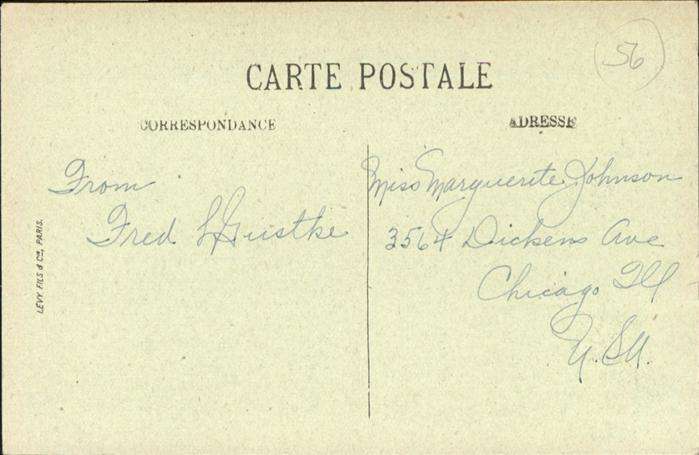 56
CARTE POSTALE
CORRESPONDANCE
ADRESSE
From
Fred L Gustke
Miss Marguerite Johnson
3564 Dickens Ave
Chicago Ill
U.S.A.
LEVY FILS & Cie, PARIS.